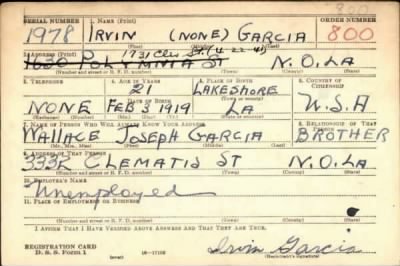 800
SERIAL NUMBER 1. NAME (Print) ORDER NUMBER
1978 IRVIN (NONE) GARCIA 800
(First) (Middle) (Last)
2. ADDRESS (Print) 1731 Clio St (4-22-41)
1630 POLYMNIA ST N.O. LA
(Number and street or R. F. D. number) (Town) (County) (State)
3. TELEPHONE 4. AGE IN YEARS 5. PLACE OF BIRTH 6. COUNTRY OF CITIZENSHIP
21 LAKESHORE
DATE OF BIRTH (Town or county)
NONE FEB 3 1919 LA U.S.A
(Exchange) (Number) (Mo.) (Day) (Yr.) (State or country)
7. NAME OF PERSON WHO WILL ALWAYS KNOW YOUR ADDRESS 8. RELATIONSHIP OF THAT PERSON
WALLACE JOSEPH GARCIA BROTHER
(Mr., Mrs., Miss) (First) (Middle) (Last)
9. ADDRESS OF THAT PERSON
CLEMATIS ST N.O. LA
(Number and street or R. F. D. number) (Town) (County) (State)
10. EMPLOYER'S NAME
Unemployed
11. PLACE OF EMPLOYMENT OR BUSINESS
(Number and street or R. F. D. number) (Town) (County) (State)
I AFFIRM THAT I HAVE VERIFIED ABOVE ANSWERS AND THAT THEY ARE TRUE.
REGISTRATION CARD
D. S. S. FORM 1 16-17105 Irvin Garcia
(Registrant's signature)